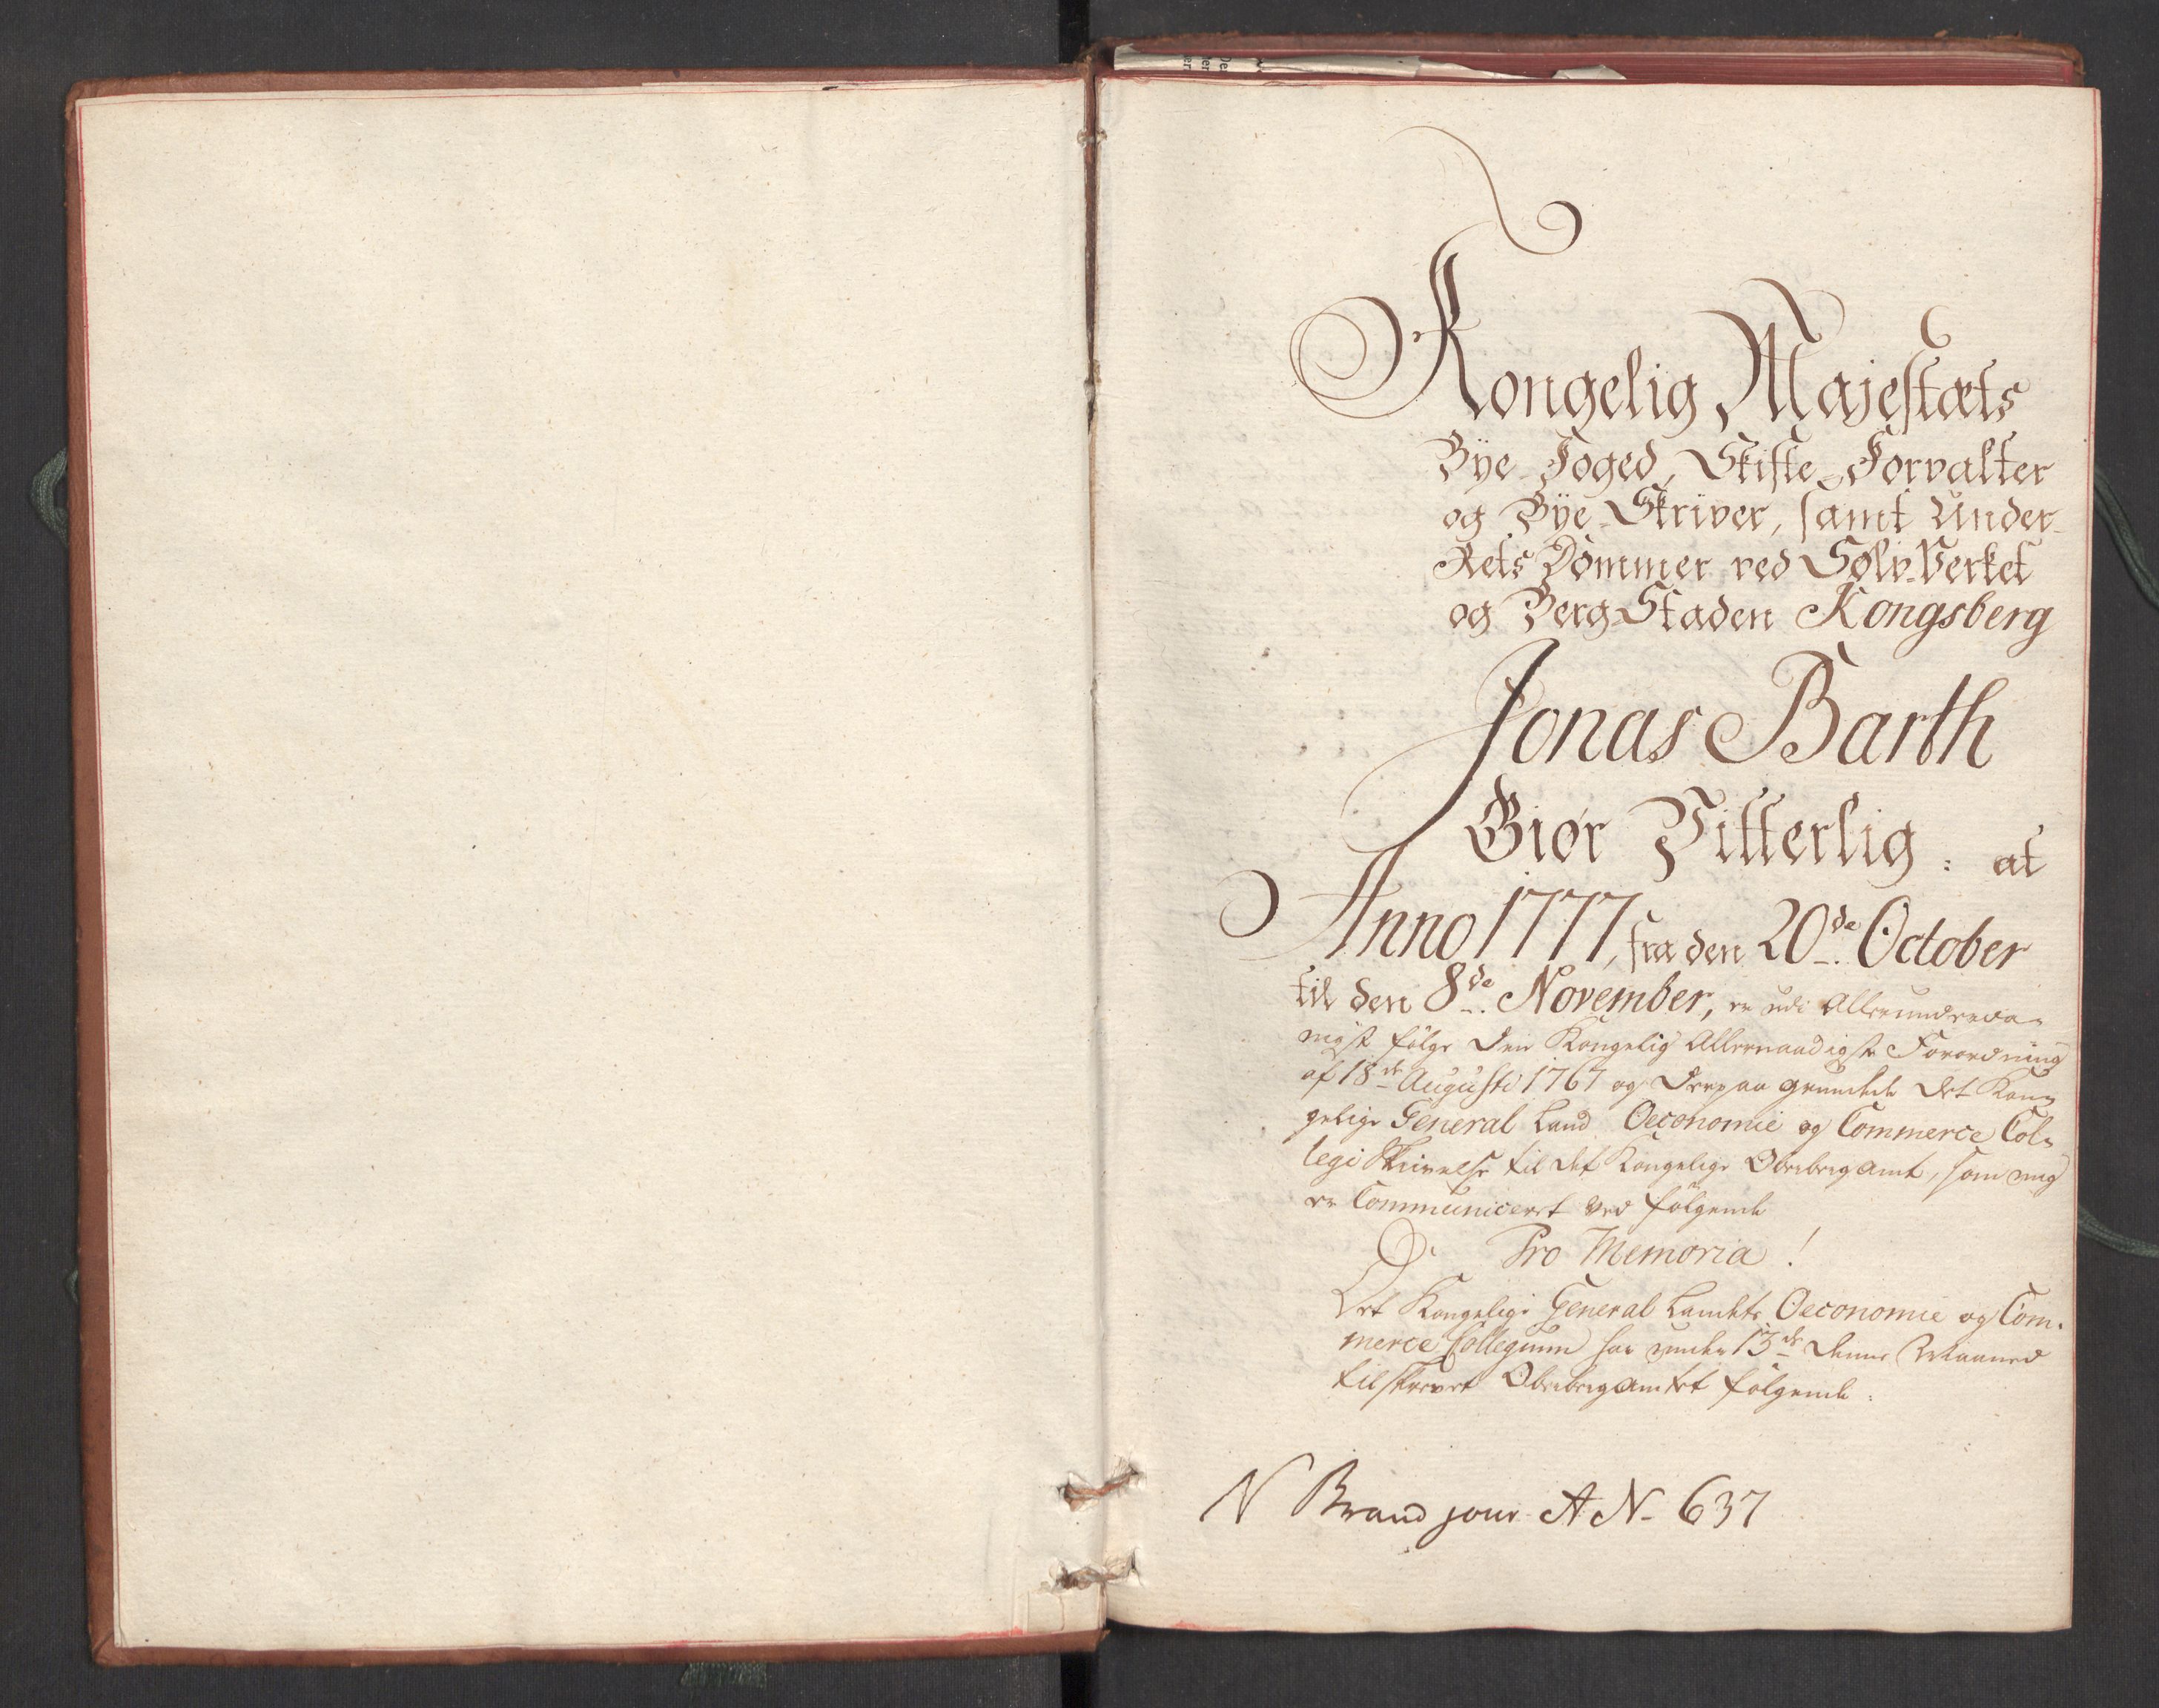 Kongelig Majestæts
Bye-Foged, Skifte-Forvalter
og Bye-Skriver, samt Under-
Rets Dommer ved Sølv-Verket
og Berg-Staden Kongsberg
Jonas Barth
Giør Vitterlig: at
Anno 1777, fra den 20de October
til den 8de November, er udi Allerunderda-
nigst følge den Kongelig Allernaadigste Forordning
af 18de Augusti 1767 og derpaa grundede det Kon-
gelige General Land Oeconomie og Commerce Col-
legi Skrivelse til det Kongelige Oberbergamt, som mig
er Communiceret ved følgende
Pro Memoria!
Det Kongelige General Landets Oeconomie og Com-
merce Collegium har under 13de denne Maaned
tilskrevet Oberbergamtet følgende:
N Brand jour A N- 637